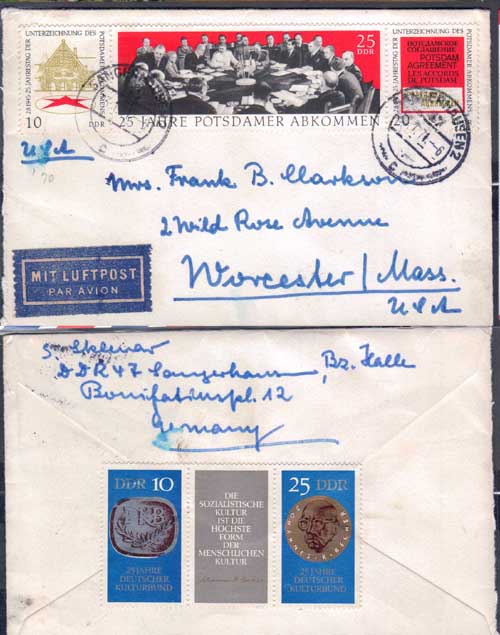 2.8.1945-25. JAHRESTAG DER
UNTERZEICHNUNG DES
POTSDAMER ABKOMMENS
10
DDR
25 DDR
25 JAHRE POTSDAMER ABKOMMEN
UNTERZEICHNUNG DES
POTSDAMER ABKOMMENS
ПОТСДАМСКОЕ
СОГЛАШЕНИЕ
POTSDAM
AGREEMENT
LES ACCORDS
DE POTSDAM
20
HAUSEN 2
USA
Mrs. Frank B. Clarkson
2 Wild Rose Avenue
Worcester/Mass.
USA
MIT LUFTPOST
PAR AVION
DDR 47 Sangerhausen, Bz. Halle
Bonifatiuspl. 12
Germany
DDR 10
25 JAHRE
DEUTSCHER
KULTURBUND
DIE
SOZIALISTISCHE
KULTUR
IST DIE
HÖCHSTE
FORM
DER
MENSCHLICHEN
KULTUR
25 DDR
JOHANNES R. BECHER
25 JAHRE
DEUTSCHER
KULTURBUND